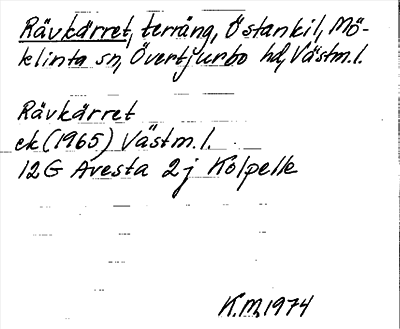 Rävkärret, terräng, Östankil, Mö-
klinta sn, Övertjurbo hd, Västm.l.
Rävkärret
ek (1965) Västm.l.
12G Avesta 2j Kolpelle
K.M. 1974